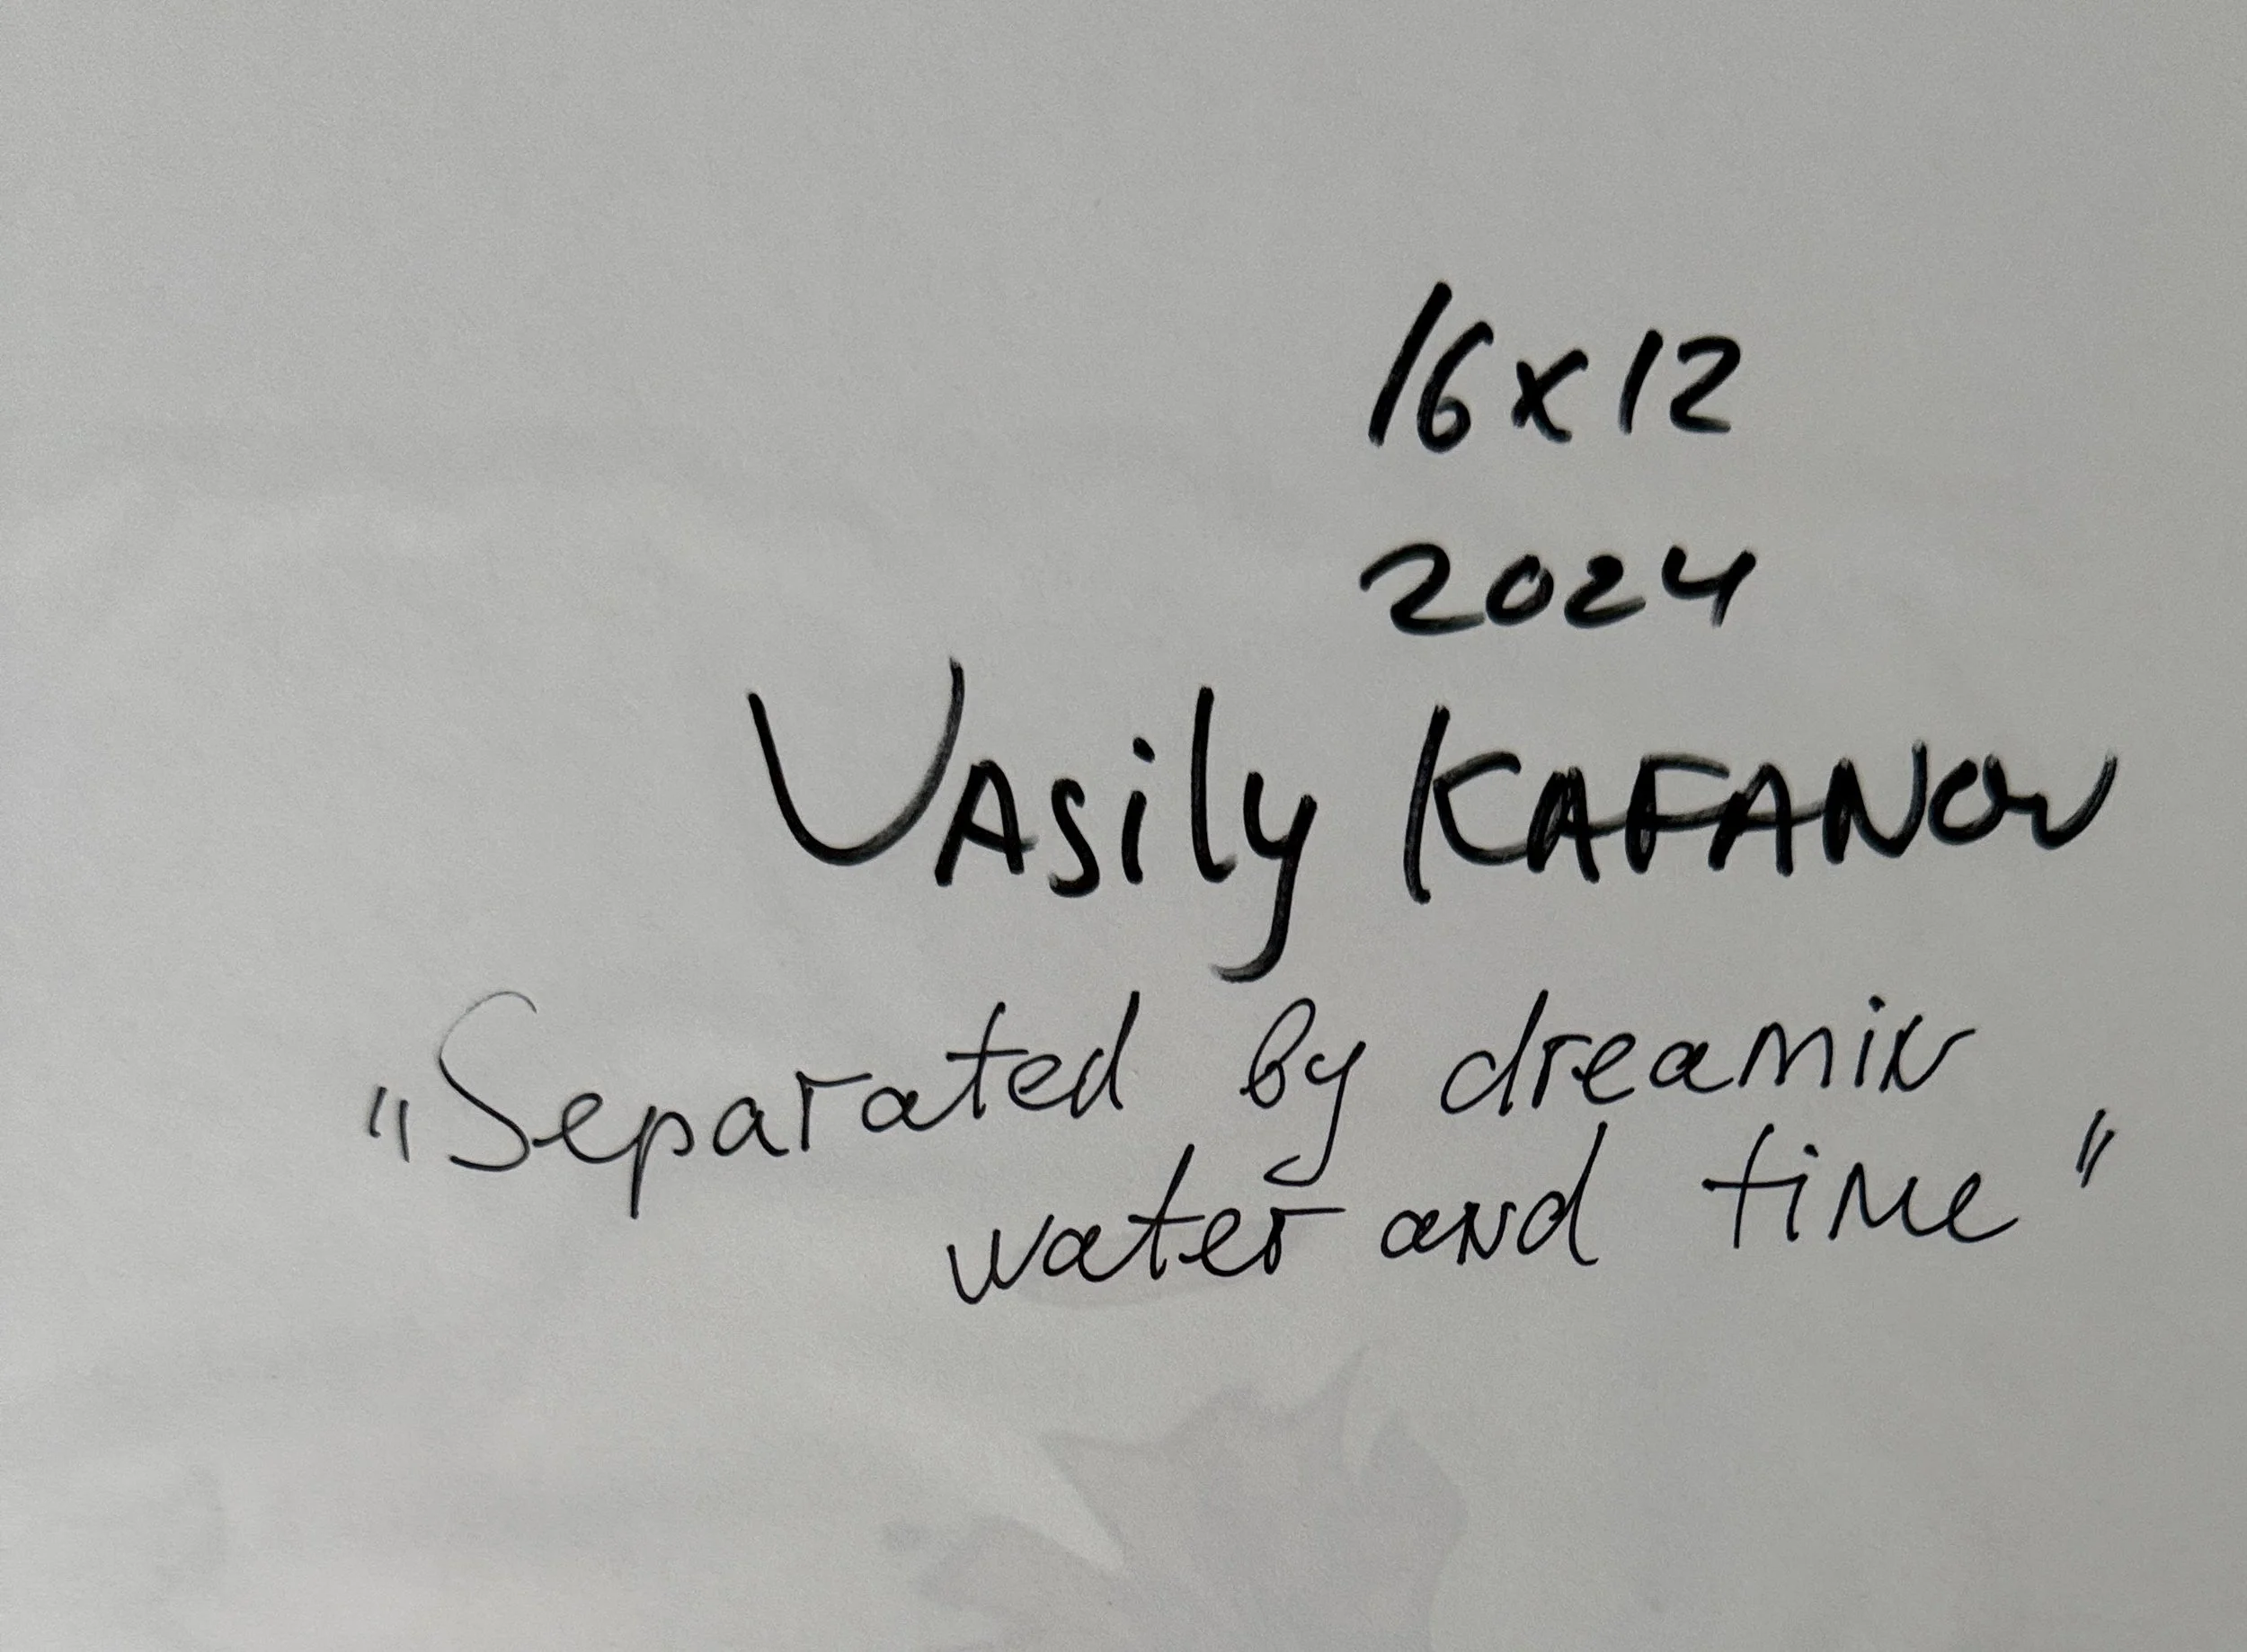 16x12
2024
VASily KAFANOV
"Separated by dreamin
water and time"